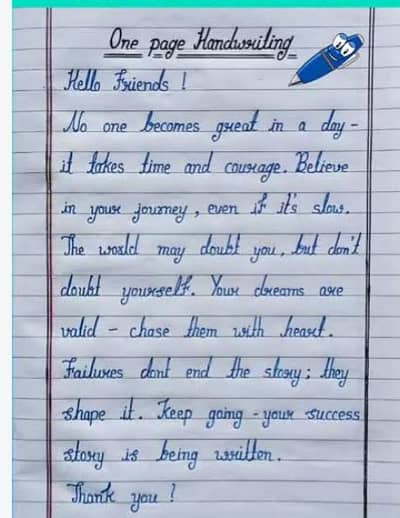 One page Handwriting
Hello Friends !
No one becomes great in a day -
it takes time and courage. Believe
in your journey, even if it's slow.
The world may doubt you, but don't
doubt yourself. Your dreams are
valid - chase them with heart.
Failures dont end the story; they
shape it. Keep going - your success
story is being written.
Thank you !